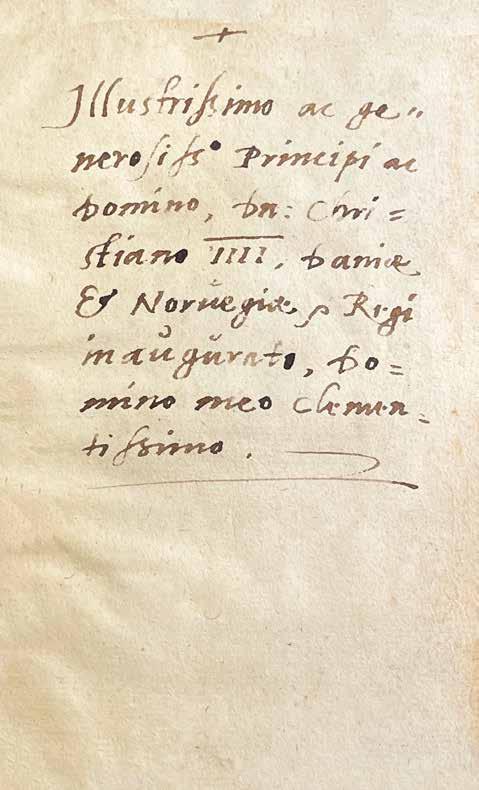 +
Illustrissimo ac ge"
nerosiss° Principi ac
Domino, Dn: Chri=
stiano IIII, Daniæ
& Norvegiæ, Regi
inaugurato, Do=
mino meo Clemen=
tissimo.